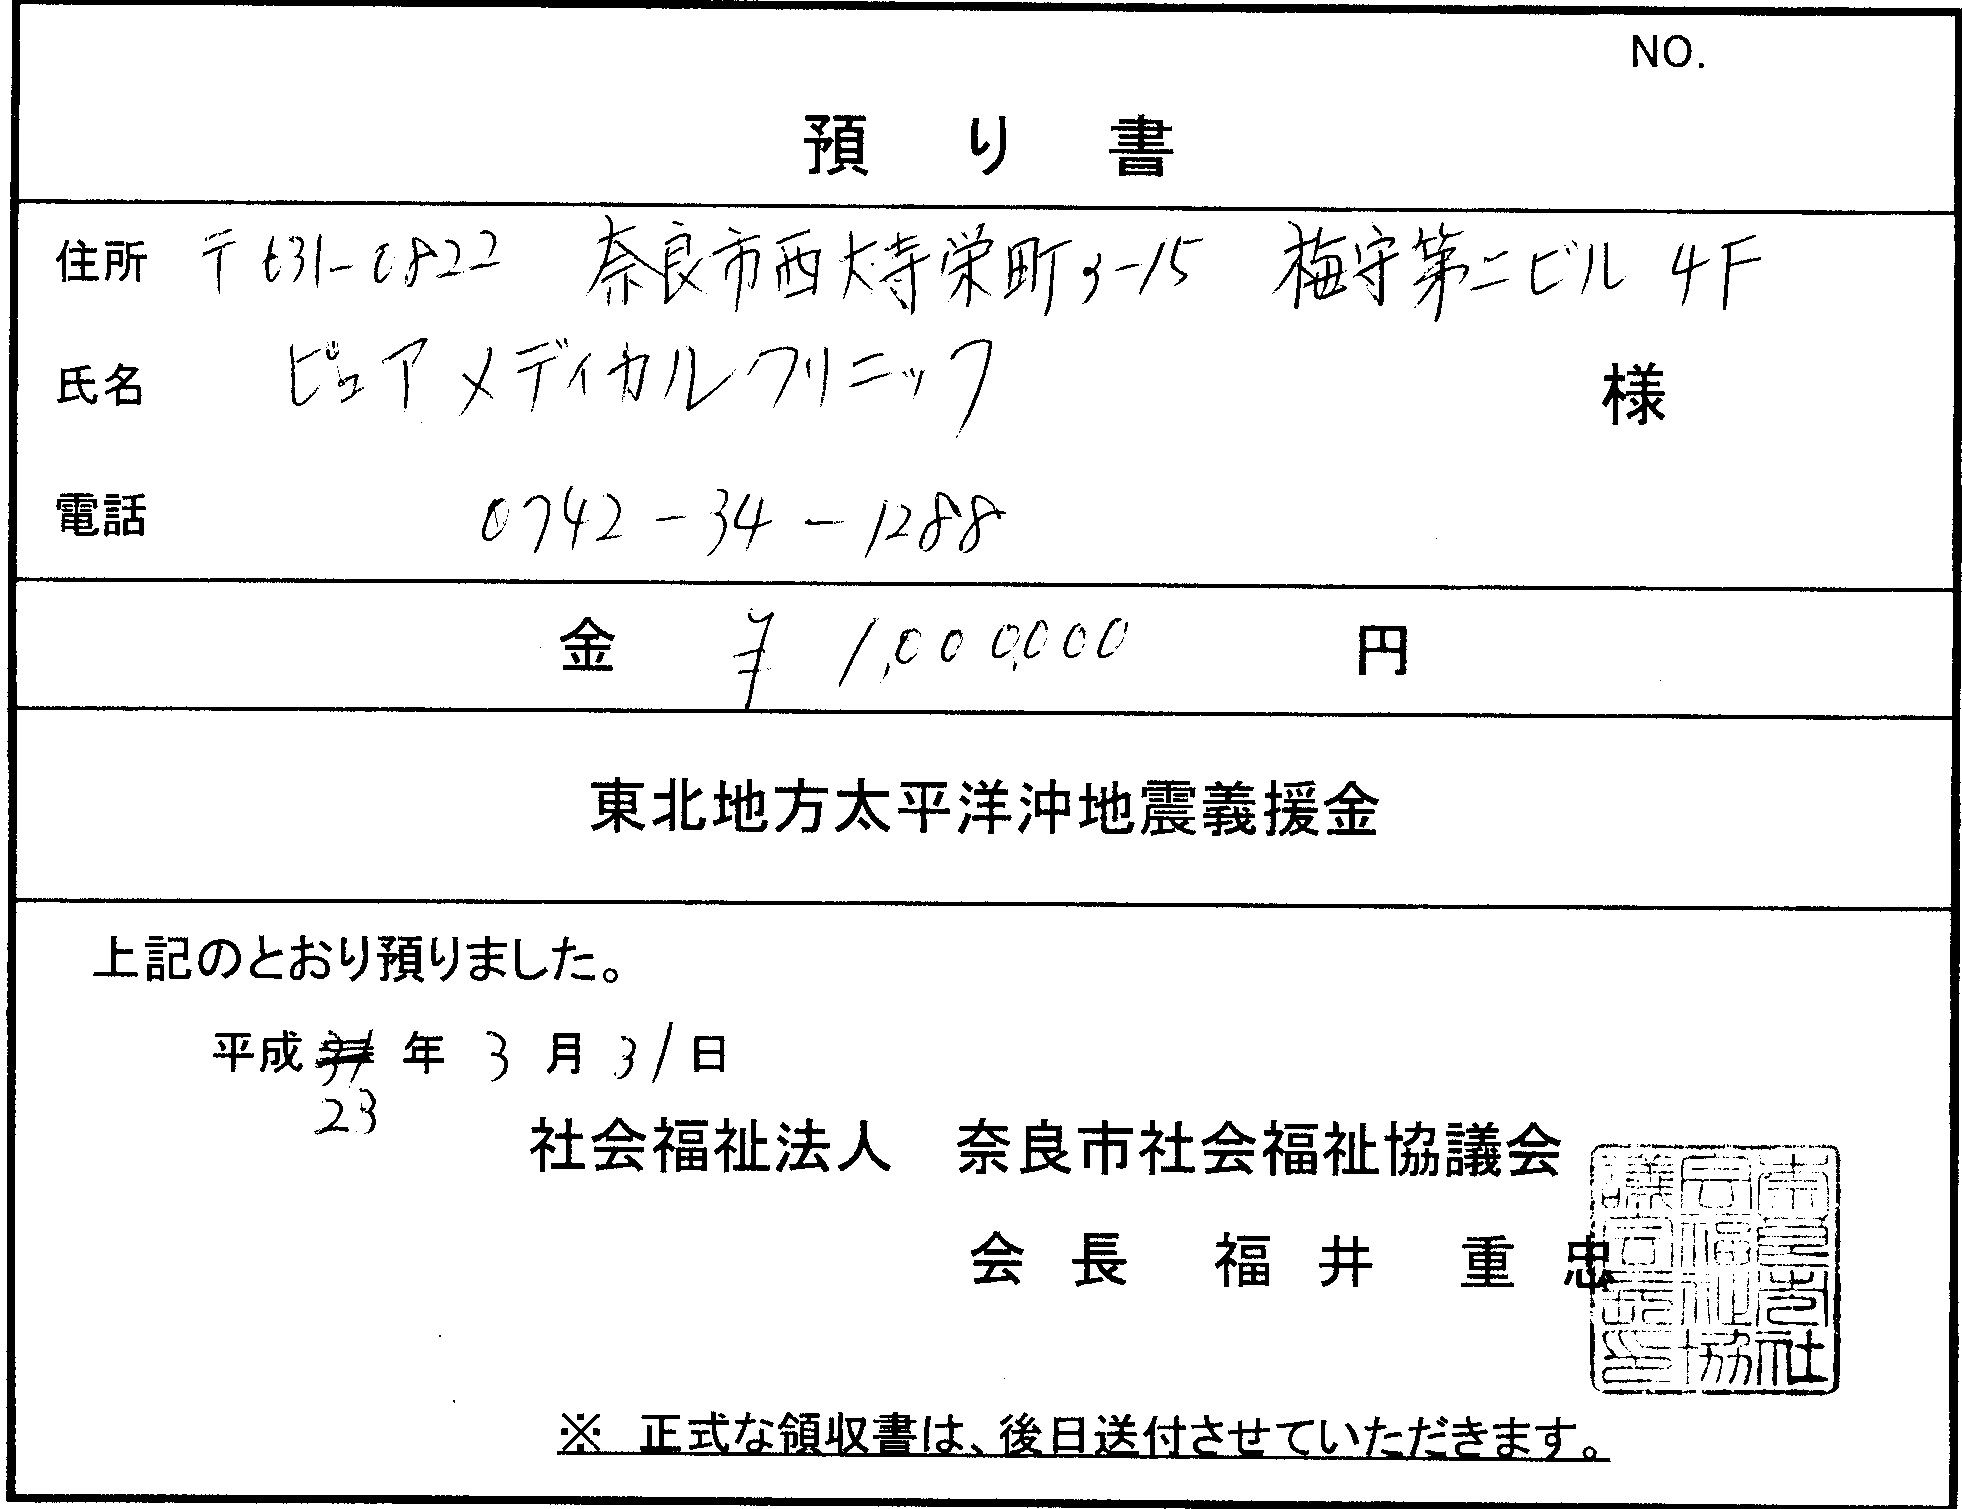 NO.
預り書
住所 〒631-0822 奈良市西大寺栄町3-15 梅守第二ビル 4F
氏名 ピュアメディカルクリニック 様
電話 0742-34-1288
金 ¥ 1,000,000 円
東北地方太平洋沖地震義援金
上記のとおり預りました。
平成 31 年 3 月 31 日
23
社会福祉法人 奈良市社会福祉協議会
会長 福井 重忠
※ 正式な領収書は、後日送付させていただきます。